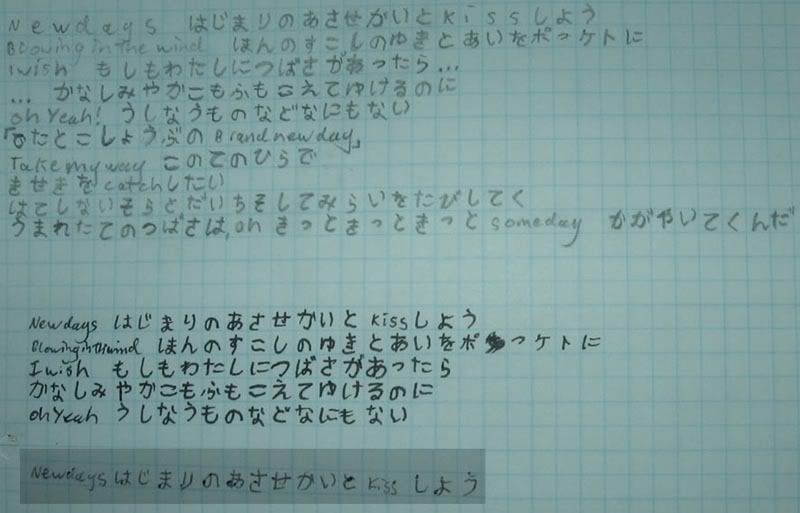 Newdays はじまりのあさせかいとkissしよう
Blowing in the wind ほんのすこしのゆきとあいをポッケトに
I wish もしもわたしにつばさがあったら...
... かなしみやかこもふもこえてゆけるのに
oh Yeah! うしなうものなどなにもない
「でたとこしょうぶの Brand new day」
Take my way このてのひらで
きせきを catchしたい
はてしないそらとだいちそしてみらいをたびしてく
うまれたてのつばさは, oh きっときっときっと someday かがやいてくんだ
Newdays はじまりのあさせかいと kissしよう
Blowing in the wind ほんのすこしのゆきとあいをポッケトに
I wish もしもわたしにつばさがあったら
かなしみやかこもふもこえてゆけるのに
oh Yeah うしなうものなどなにもない
Newdays はじまりのあさせかいと kiss しよう